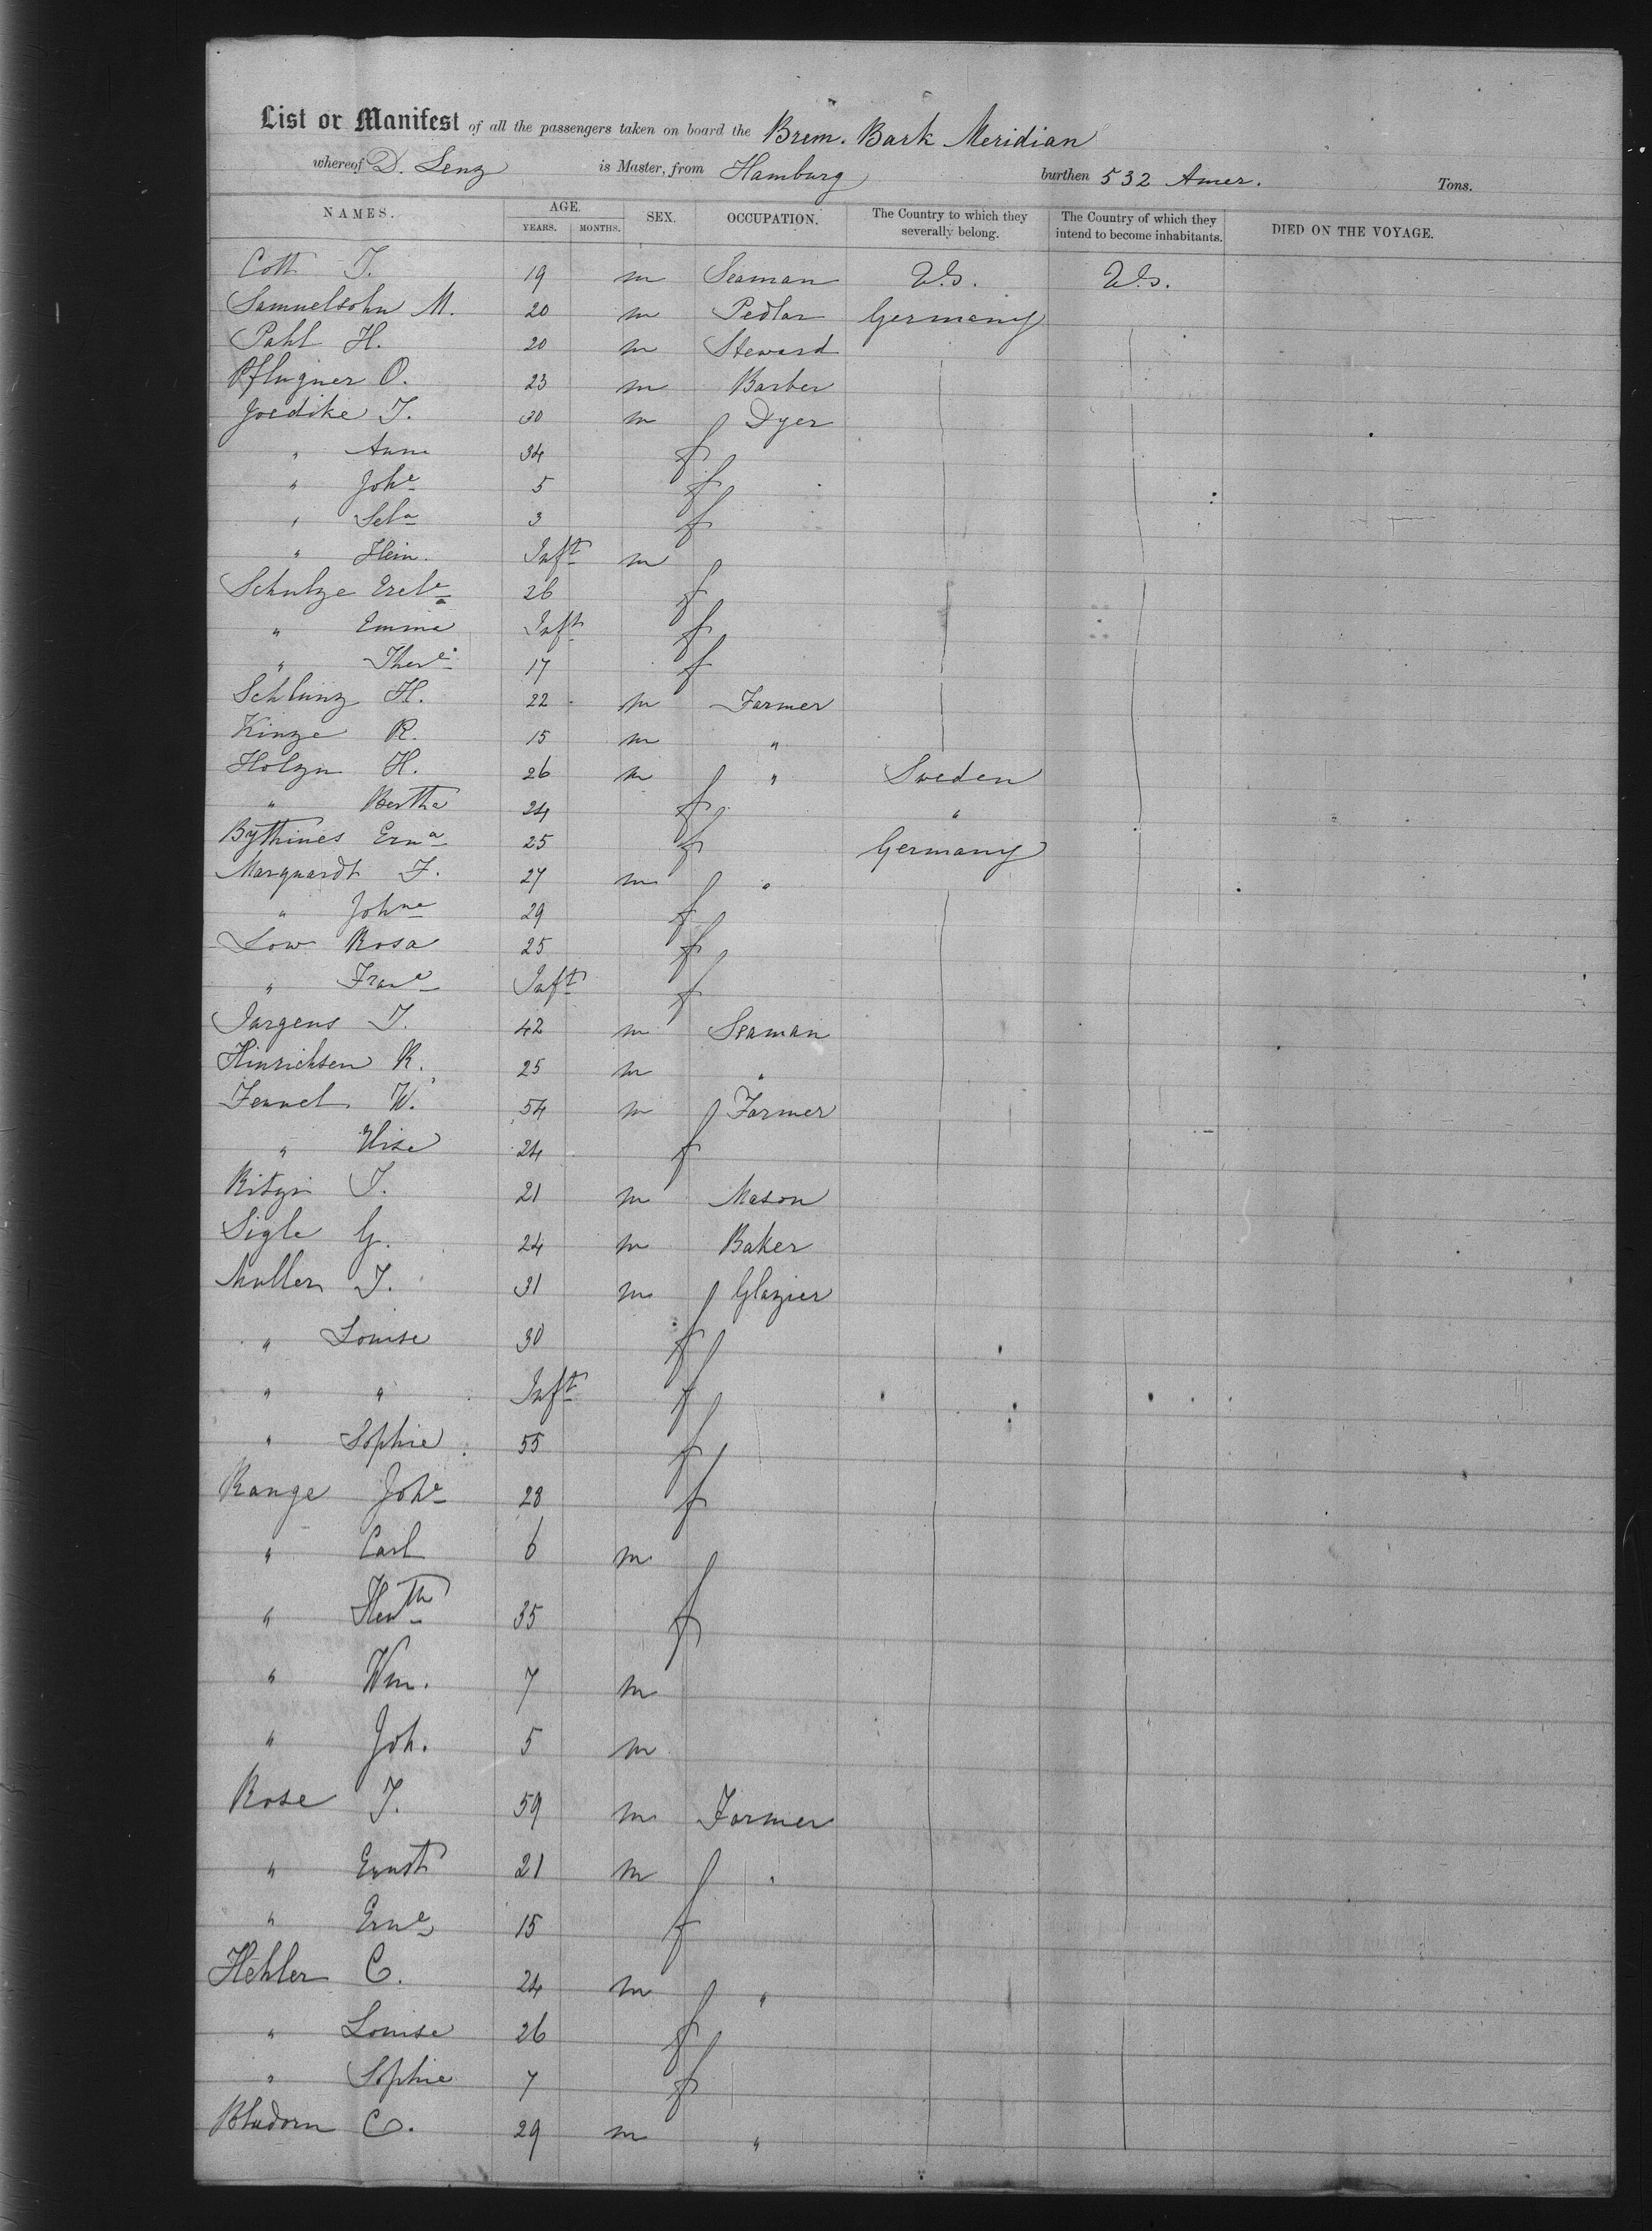 List or Manifest of all the passengers taken on board the Brem. Bark Meridian
whereof D. Lenz is Master, from Hamburg burthen 532 Amer. Tons.
NAMES. AGE. SEX. OCCUPATION. The Country to which they severally belong. The Country of which they intend to become inhabitants. DIED ON THE VOYAGE.
YEARS. MONTHS.
Cott J. 19 m Seaman U.S. U.S.
Samuelsohn M. 20 m Pedlar Germany
Pahl H. 20 m Steward
Pflugner O. 23 m Barber
Joedike J. 30 m Dyer
" Anna 34 f
" Johe 5 f
" 3 f
" Hein. Inft m
Schulze 26 f
" Emma Inft f
" There 17 f
Schlunz H. 22 m Farmer
Kinze R. 15 m "
Holzn H. 26 m " Sweden
" Bertha 24 f "
Bythines Erna 25 f Germany
Marquardt F. 27 m "
" Johne 29 f
Low Rosa 25 f
" Frane Inft f
Jargens J. 42 m Seaman
Hinrichsen R. 25 m "
Fennel W. 54 m Farmer
" Elise 24 f
J. 21 m Mason
Sigle G. 24 m Baker
Muller J. 31 m Glazier
" Louise 30 f
" " Inft f
" Sophie 55 f
Range Johe 28 f
" Carl 6 m
" 35 f
" Wm. 7 m
" Joh. 5 m
Rose J. 59 m Farmer
" Ernst 21 m "
" Erne 15 f
Hehler C. 24 m "
" Louise 26 f
" Sophie 7 f
Bludorn C. 29 m "